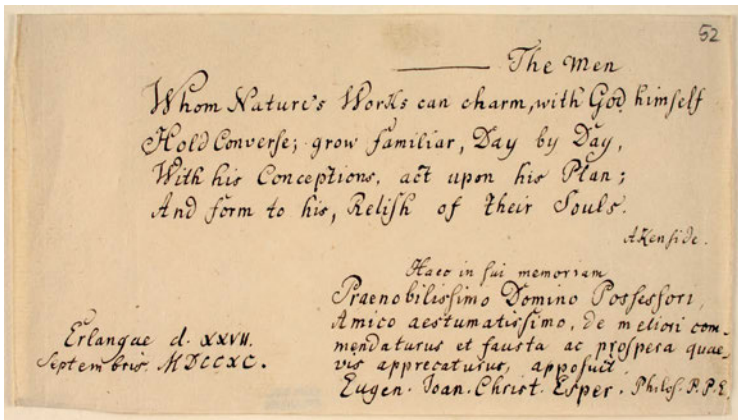 52
——— The Men
Whom Nature's Works can charm, with God himself
Hold Converse; grow familiar, Day by Day,
With his Conceptions, act upon his Plan;
And form to his, Relish of their Souls.
Akenside.
Haec in sui memoriam
Praenobilissimo Domino Possessori,
Amico aestumatissimo, de meliori com-
mendaturus et fausta ac prospera quae-
vis apprecaturus, apposuit
Eugen. Ioan. Christ. Esper. Philos. P.P.E.
Erlangae d. XXVII.
Septembris. MDCCXC.